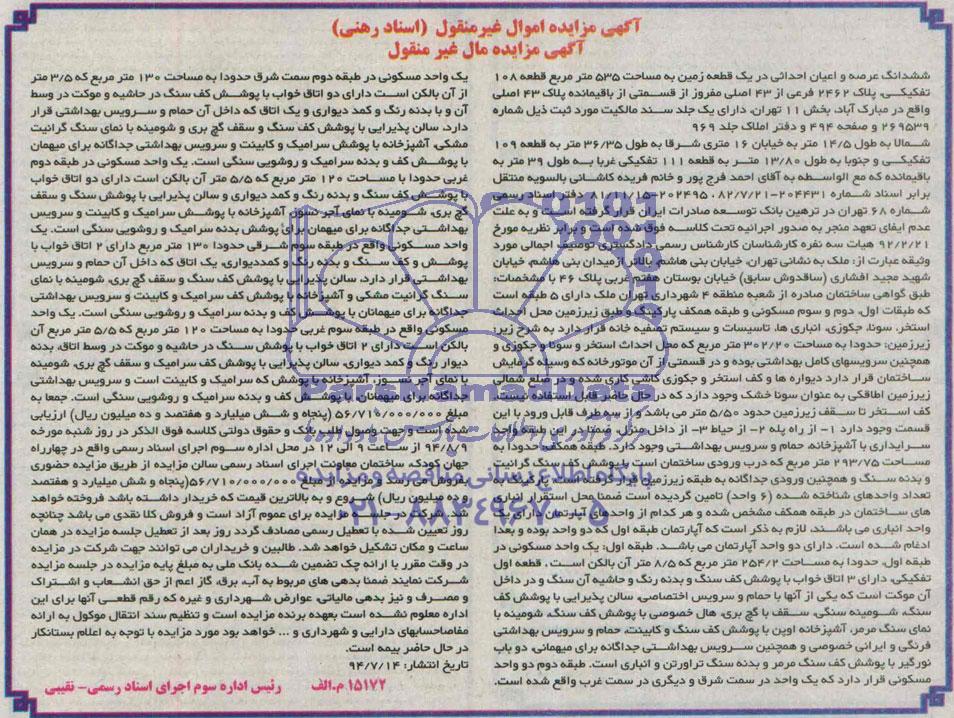 آگهی مزایده اموال غیرمنقول (اسناد رهنی)
آگهی مزایده مال غیر منقول
ششدانگ عرصه و اعیان احداثی در یک قطعه زمین به مساحت ۵۳۵ متر مربع قطعه ۱۰۸
تفکیکی، پلاک ۲۴۶۲ فرعی از ۴۳ اصلی مفروز از قسمتی از باقیمانده پلاک ۴۳ اصلی
واقع در مبارک آباد، بخش ۱۱ تهران، دارای یک جلد سند مالکیت مورد ثبت ذیل شماره
۲۶۹۵۳۹ و صفحه ۴۹۴ و دفتر املاک جلد ۹۶۹
شمالا به طول ۱۴/۵ متر به خیابان ۱۶ متری شرقا به طول ۳۶/۳۵ متر به قطعه ۱۰۹
تفکیکی و جنوبا به طول ۱۳/۸۰ متر به قطعه ۱۱۱ تفکیکی غربا به طول ۳۹ متر به
باقیمانده که مع الواسطه به آقای احمد فرج پور و خانم فریده کاشانی بالسویه منتقل
برابر اسناد شماره ۲۰۴۴۳۱-۸۲/۷/۲۱ ۲۰۲۴۹۵ دفتر اسناد رسمی
شماره ۶۸ تهران در ترهین بانک توسعه صادرات ایران قرار گرفته است و به علت
عدم ایفای تعهد منجر به صدور اجرائیه تحت کلاسه فوق شده است و برابر نظریه مورخ
۹۲/۲/۲۱ هیات سه نفره کارشناسان کارشناس رسمی دادگستری توصیف اجمالی مورد
وثیقه عبارت از: ملک به نشانی تهران، خیابان بنی هاشم، بالاتر از میدان بنی هاشم، خیابان
شهید مجید افشاری (ساقدوش سابق) خیابان بوستان هفتم غربی پلاک ۴۶ با مشخصات:
طبق گواهی ساختمان صادره از شعبه منطقه ۴ شهرداری تهران ملک دارای ۵ طبقه است
که طبقات اول، دوم و سوم مسکونی و طبقه همکف پارکینگ و طبق زیرزمین محل احداث
استخر، سونا، جکوزی، انباری ها، تاسیسات و سیستم تصفیه خانه قرار دارد به شرح زیر:
زیرزمین: حدودا به مساحت ۳۰۲/۲۰ متر مربع که محل احداث استخر و سونا و جکوزی و
همچنین سرویسهای کامل بهداشتی بوده و در قسمتی از آن موتورخانه که وسیله گرمایش
ساختمان قرار دارد دیواره ها و کف استخر و جکوزی کاشی کاری شده و در ضلع شمالی
زیرزمین اطاقکی به عنوان سونا خشک وجود دارد که در حال حاضر قابل استفاده نیست.
کف استخر تا سقف زیرزمین حدود ۵/۵۰ متر می باشد و از سه طرف قابل ورود با این
قسمت وجود دارد ۱- از راه پله ۲- از حیاط ۳- از داخل منزل، ضمنا در این طبقه واحد
سرایداری با آشپزخانه، حمام و سرویس بهداشتی وجود دارد. طبقه همکف: حدودا به
مساحت ۲۹۳/۷۵ متر مربع که درب ورودی ساختمان است با پوشش کف سنگ گرانیت
و بدنه سنگ و همچنین ورودی جداگانه به طبقه زیرزمین قرار گرفته است پارکینگ به
تعداد واحدهای شناخته شده (۶ واحد) تامین گردیده است ضمنا محل استقرار انباری
های ساختمان در طبقه همکف مشخص شده و هر کدام از واحدهای آپارتمان دارای یک
واحد انباری می باشند، لازم به ذکر است که آپارتمان طبقه اول که دو واحد بوده و بعدا
ادغام شده است. دارای دو واحد آپارتمان می باشد. طبقه اول: یک واحد مسکونی در
طبقه اول، حدودا به مساحت ۲۵۴/۲ متر مربع که ۸/۵ متر آن بالکن است. قطعه اول
تفکیکی، دارای ۳ اتاق خواب با پوشش کف سنگ و بدنه رنگ و حاشیه آن سنگ و در داخل
آن موکت است که یکی از آنها با حمام و سرویس اختصاصی، سالن پذیرایی با پوشش کف
سنگ، شومینه سنگی، سقف با گچ بری، هال خصوصی با پوشش کف سنگ، شومینه با
نمای سنگ مرمر، آشپزخانه اوپن با پوشش کف سنگ و کابینت، حمام و سرویس بهداشتی
فرنگی و ایرانی خصوصی و همچنین سرویس بهداشتی جداگانه برای میهمانی، دو باب
نورگیر با پوشش کف سنگ مرمر و بدنه سنگ تراورتن و انباری است. طبقه دوم دو واحد
مسکونی قرار دارد که یک واحد در سمت شرق و دیگری در سمت غرب واقع شده است.
یک واحد مسکونی در طبقه دوم سمت شرق حدودا به مساحت ۱۳۰ متر مربع که ۳/۵ متر
از آن بالکن است دارای دو اتاق خواب با پوشش کف سنگ در حاشیه و موکت در وسط
آن و با بدنه رنگ و کمد دیواری و یک اتاق که داخل آن حمام و سرویس بهداشتی قرار
دارد، سالن پذیرایی با پوشش کف سنگ و سقف گچ بری و شومینه با نمای سنگ گرانیت
مشکی، آشپزخانه با پوشش سرامیک و کابینت و سرویس بهداشتی جداگانه برای میهمان
با پوشش کف و بدنه سرامیک و روشویی سنگی است. یک واحد مسکونی در طبقه دوم
غربی حدودا با مساحت ۱۲۰ متر که ۵/۵ متر آن بالکن است دارای دو اتاق خواب
با پوشش کف سنگ و بدنه رنگ و کمد دیواری و سالن پذیرایی با پوشش سنگ و سقف
گچ بری، شومینه با نمای آجر نسوز، آشپزخانه با پوشش سرامیک و کابینت و سرویس
بهداشتی جداگانه برای میهمان با پوشش بدنه سرامیک و روشویی سنگی است. یک
واحد مسکونی واقع در طبقه سوم شرقی حدودا ۱۳۰ متر مربع دارای ۲ اتاق خواب با
پوشش و کف سنگ و بدنه رنگ و کمددیواری، یک اتاق که داخل آن حمام و سرویس
بهداشتی قرار دارد، سالن پذیرایی با پوشش کف سنگ و سقف گچ بری، شومینه با نمای
سنگ گرانیت مشکی و آشپزخانه با پوشش کف سرامیک و کابینت و سرویس بهداشتی
جداگانه برای میهمانان با پوشش کف و بدنه سرامیک و روشویی سنگی است. یک واحد
مسکونی واقع در طبقه سوم غربی حدودا به مساحت ۱۲۰ متر مربع که ۵/۵ متر مربع آن
بالکن است دارای ۲ اتاق خواب با پوشش سنگ در حاشیه و موکت در وسط اتاق، بدنه
دیوار رنگ و کمد دیواری، سالن پذیرایی با پوشش کف سرامیک و سقف گچ بری، شومینه
با نمای آجر نسوز، آشپزخانه با پوشش که سرامیک و کابینت است و سرویس بهداشتی
جداگانه برای میهمانان با پوشش کف و بدنه سرامیک و روشویی سنگی است. جمعا به
مبلغ ۵۶/۷۱۰/۰۰۰/۰۰۰ (پنجاه و شش میلیارد و هفتصد و ده میلیون ریال) ارزیابی
شده است و جهت وصول طلب بانک و حقوق دولتی کلاسه فوق الذکر در روز شنبه مورخه
۹۴/۸/۹ از ساعت ۹ الی ۱۲ در محل اداره سوم اجرای اسناد رسمی واقع در چهارراه
جهان کودک، ساختمان معاونت اجرای اسناد رسمی سالن مزایده از طریق مزایده حضوری
بفروش می رسد و مزایده از مبلغ ۵۶/۷۱۰/۰۰۰/۰۰۰(پنجاه و شش میلیارد و هفتصد
و ده میلیون ریال) شروع و به بالاترین قیمت که خریدار داشته باشد فروخته خواهد
شد. شرکت در جلسه مزایده برای عموم آزاد است و فروش کلا نقدی می باشد چنانچه
روز تعیین شده با تعطیل رسمی مصادف گردد روز بعد از تعطیل جلسه مزایده در همان
ساعت و مکان تشکیل خواهد شد. طالبین و خریداران می توانند جهت شرکت در مزایده
در وقت مقرر با ارائه چک تضمین شده بانک ملی به مبلغ پایه مزایده در جلسه مزایده
شرکت نمایند ضمنا بدهی های مربوط به آب، برق، گاز اعم از حق انشعاب و اشتراک
و مصرف و نیز بدهی مالیاتی، عوارض شهرداری و غیره که رقم قطعی آنها برای این
اداره معلوم نشده است بعهده برنده مزایده است و تنظیم سند انتقال موکول به ارائه
مفاصاحسابهای دارایی و شهرداری و ... خواهد بود مورد مزایده با توجه به اعلام بستانکار
در حال حاضر بیمه است.
تاریخ انتشار: ۹۴/۷/۱۴
۱۵۱۷۲ م.الف رئیس اداره سوم اجرای اسناد رسمی- نقیبی